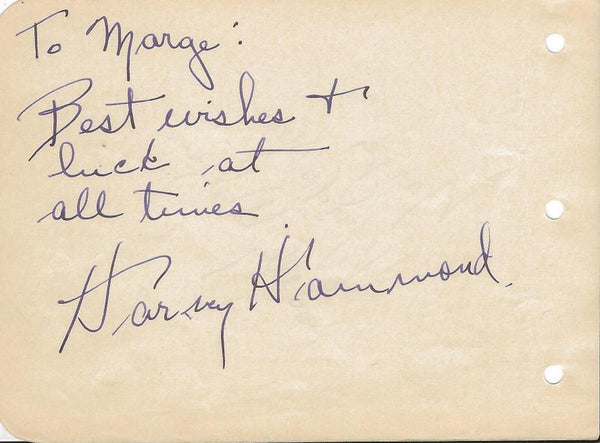 To Marge:
Best wishes +
luck at
all times.
Harvey Hammond.